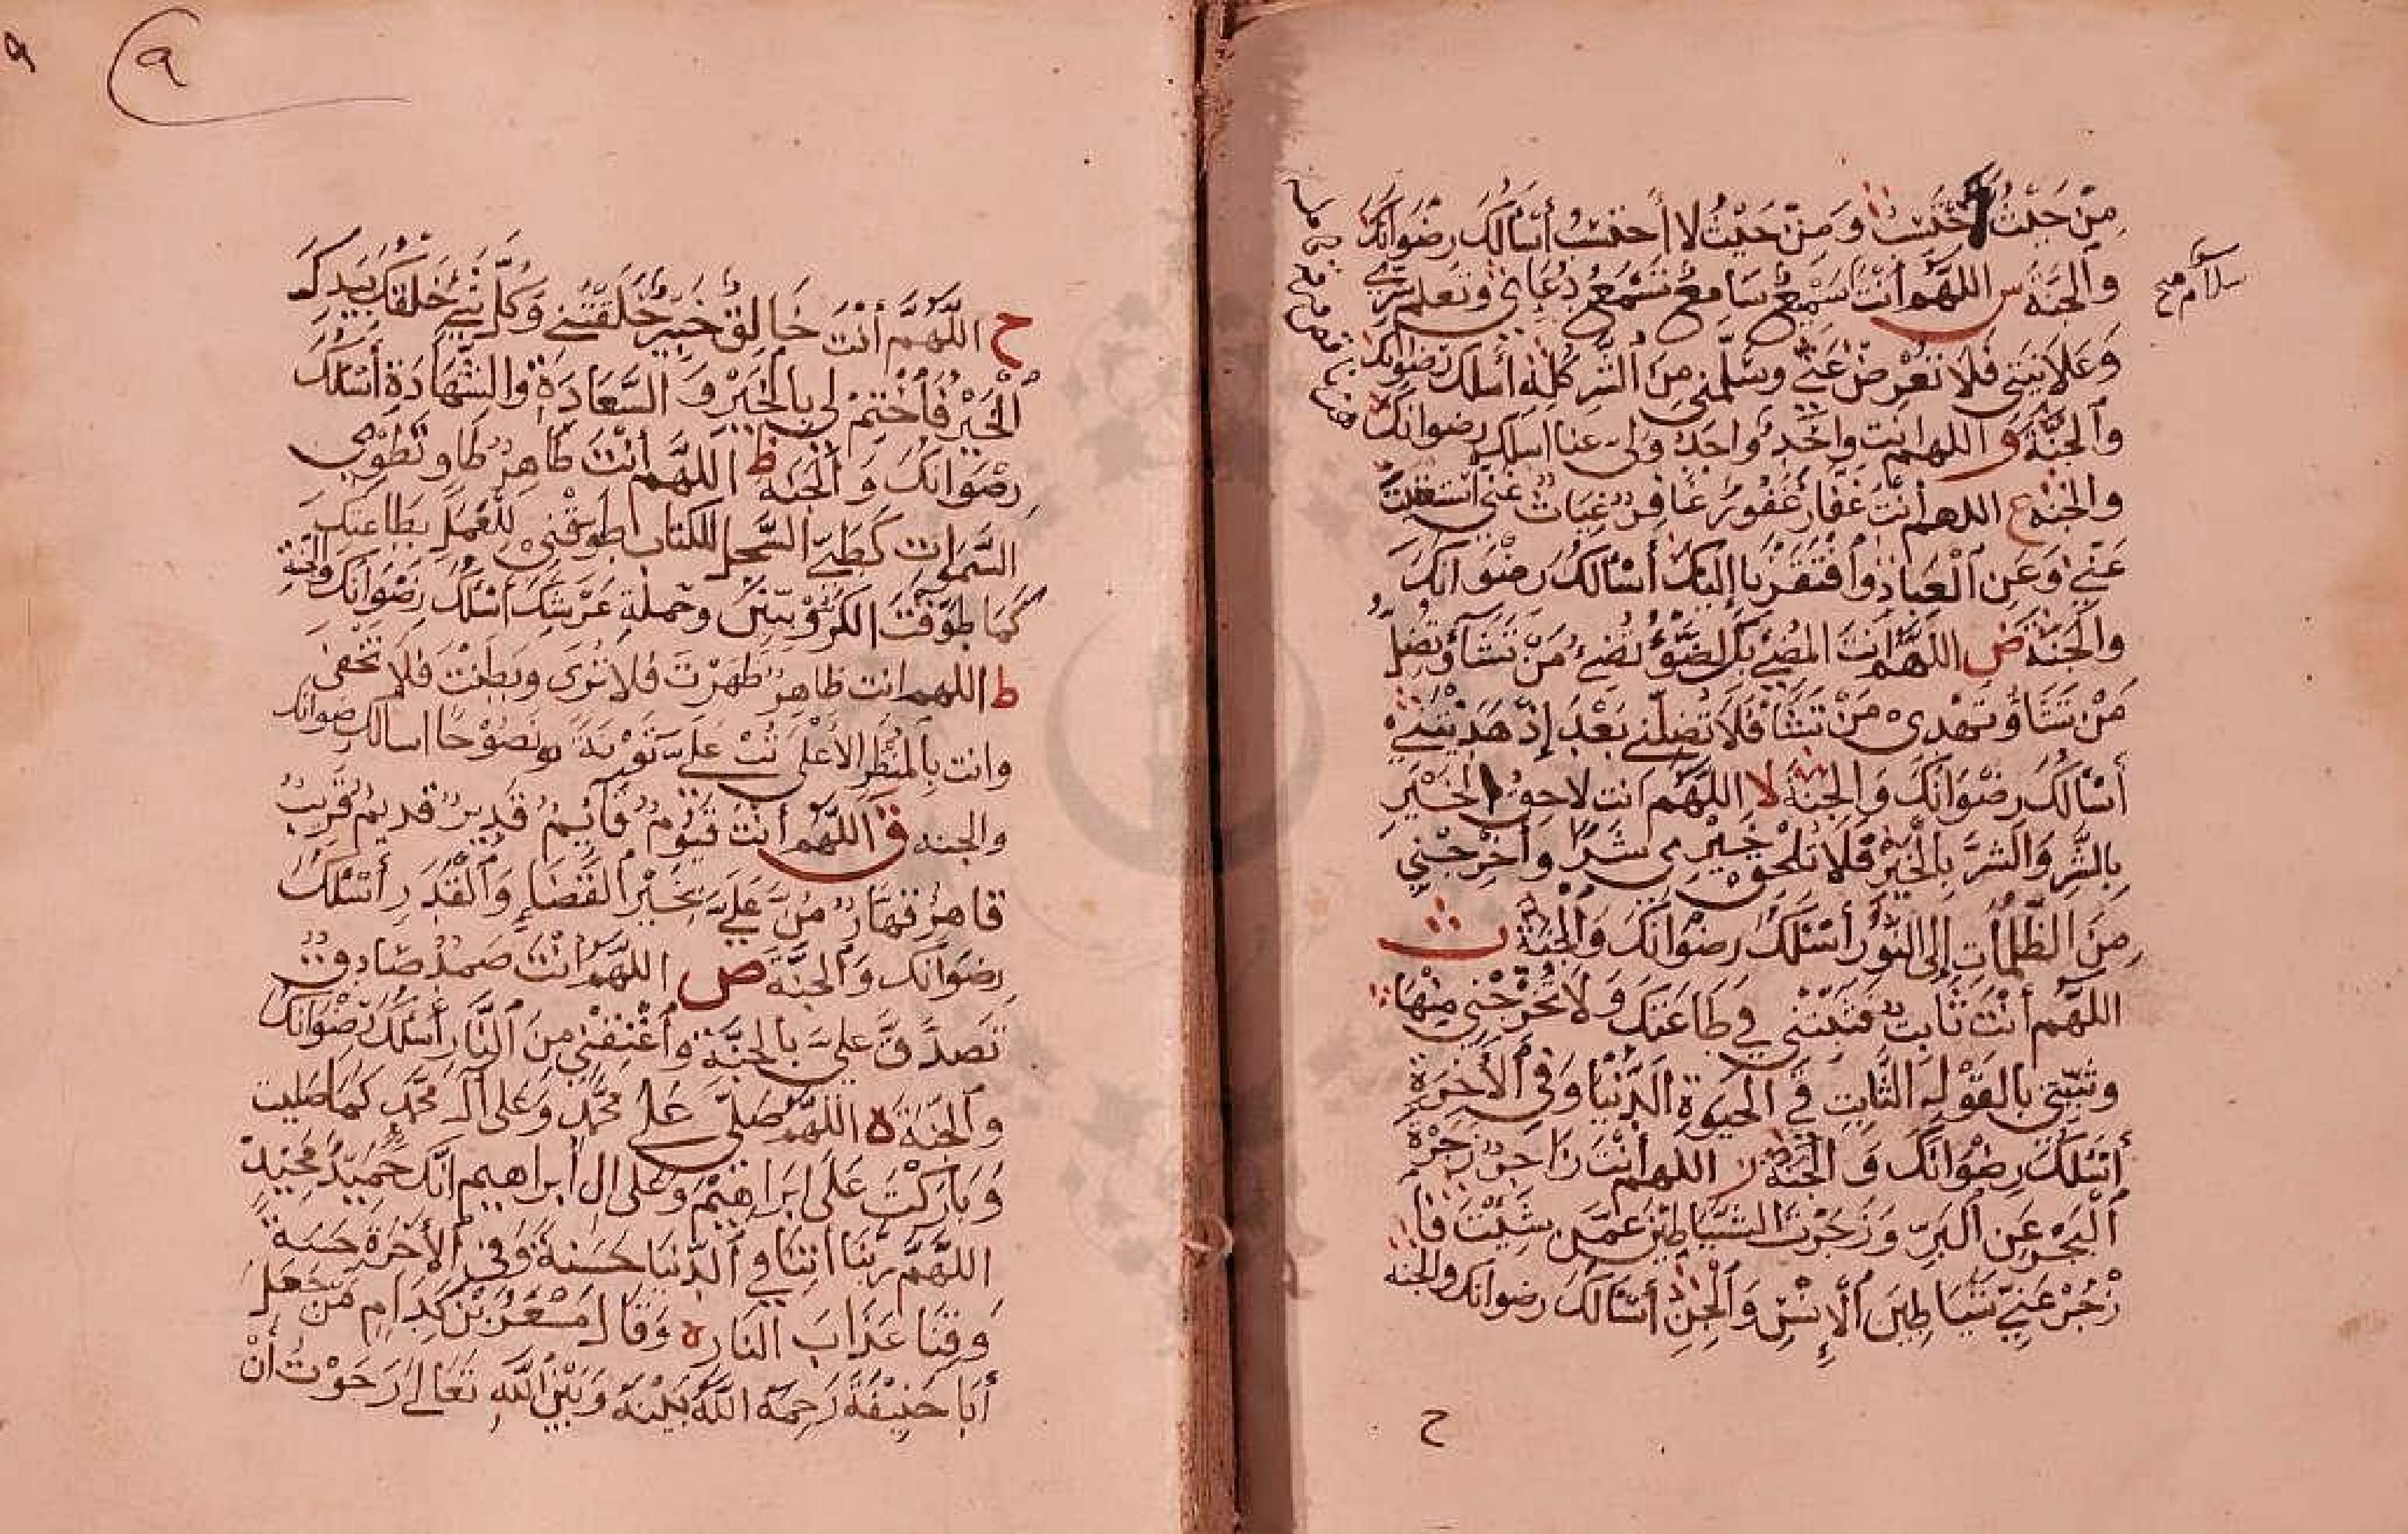 مِنْ حَيْثُ أَحْتَسِبُ وَمِنْ حَيْثُ لَا أَحْتَسِبُ أَسْأَلُكَ رِضْوَانَكَ
وَالْجَنَّةَ س اللَّهُمَّ أَنْتَ سَمِيعٌ سَامِعٌ تَسْمَعُ دُعَائِي وَتَعْلَمُ سِرِّي
وَعَلَانِيَتِي فَلَا تُعْرِضْ عَنِّي وَسَلِّمْنِي مِنَ الشَّرِّ كُلِّهِ أَسْلُكَ رِضْوَانَكَ
وَالْجَنَّةَ و اللهم أنت وَاحِدٌ واجد اسلك رضوانك
والجنة ع اللهم أَنْتَ غَفَّارٌ غَفُورٌ
عَنِّي وَعَنِ الْعِبَادِ وَافْتَقَرْنَا إِلَيْكَ أَسْأَلُكَ رِضْوَانَكَ
وَالْجَنَّةَ ض اللَّهُمَّ أَنْتَ الْمُضِيءُ بِكُلِّ ضَوْءٍ تُضِيءُ مَنْ تَشَاءُ وَتُضِلُّ
مَنْ تَشَاءُ وَتَهْدِي مَنْ تَشَا فَلَا تُضِلَّنِي بَعْدَ إِذْ هَدَيْتَنِي
أَسْأَلُكَ رِضْوَانَكَ وَالْجَنَّةَ لا اللَّهُمَّ أنت لاحق الْخَيْرِ
بِالشَّرِّ وَالشَّرِّ بِالْخَيْرِ فَلَا تُلْحِقْ خَيْرِي شَرًّا وَأَخْرِجْنِي
مِنَ الظُّلُمَاتِ إِلَى النُّورِ أَسْئَلُكَ رِضْوَانَكَ وَالْجَنَّةَ ث
اللَّهُمَّ أَنْتَ ثَابِتٌ فَثَبِّتْنِي فِي طَاعَتِكَ وَلَا تُخْرِجْنِي مِنْهَا
وَثَبِّتْنِي بِالْقَوْلِ الثَّابِتِ فِي الْحَيَوةِ الدُّنْيَا وَفِي الْأَخِرَةِ
أَسْئَلُكَ رِضْوَانَكَ وَالْجَنَّةَ ز اللهم أَنْتَ زَاجِرٌ زَجَرْتَ
الْبَحْرَ عَنِ الْبَرِّ وَزَجَرْتَ الشَّيَاطِينَ عَمَّنْ شِئْتَ فَا
زْجُرْ عَنِّي شَيَاطِينَ الْإِنْسِ وَالْجِنِّ أَسْأَلُكَ رِضْوَانَكَ وَالْجَنَّة
ح
٩
ح اللَّهُمَّ أَنْتَ خَالِقٌ خَيْرٌ خَلَقْتَنِي وَكُلَّ شَيْءٍ خَلَقْتَ بِيَدِكَ
الْخَيْرُ فَأَخْتِمْ لِي بِالْخَيْرِ وَالسَّعَادَةِ وَالشَّهَادَةِ أَسْئَلُكَ
رِضْوَانَكَ وَالْجَنَّةَ ط اللَّهُمَّ أَنْتَ طَاهِرٌ تَطْوِي
السَّمَوَاتِ كَطَيِّ السِّجِلِّ لِلْكِتَابِ طَوِّقْنِي لِلْعَمَلِ بِطَاعَتِكَ
كَمَا طَوَّقْتَ الْكَرُّوبِيِّينَ وَحَمَلَةِ عَرْشِكَ أَسْئَلُكَ رِضْوَانَكَ وَالْجَنَّةَ
ظ اللهم أنت ظَاهِرٌ ظَهَرْتَ فَلَا تُرَى وَبَطَنْتَ فَلَا تَخْفَى
وَأنت بِالْمَنْظَرِ الْأَعْلَى تُبْ عَلَيَّ تَوْبَةً نَصُوحًا اسالك رضوانك
والجنه ق اللَّهُمَّ أَنْتَ قَيُّومٌ قَائِمٌ قَدِيرٌ قَدِيمٌ قَرِيبٌ
قَاهِرٌ قَهَّارٌ مُنَّ عَلَيَّ بِخَيْرِ الْقَضَاءِ وَالْقَدَرِ أَسْئَلُكَ
رِضْوَانَكَ وَالْجَنَّةَ ص اللَّهُمَّ أَنْتَ صَمَدٌ صَادِقٌ
تَصَدَّقْ عَلَيَّ بِالْجَنَّةِ وَأَعْتِقْنِي مِنَ النَّارِ أَسْلُكَ رِضْوَانَكَ
وَالْجَنَّةَ ه اللَّهُمَّ صَلِّي عَلَى مُحَمَّدٍ وَعَلَى آلِ مُحَمَّدٍ كَمَا صَلَّيْتَ
وَبَارَكْتَ عَلَى ابْرَاهِيمَ وَعَلَى الِ أبراهيم إنَّكَ حَمِيدٌ مَجِيدٌ
اللَّهُمَّ رَبَّنَا آتِنَا فِي الدُّنْيَا حَسَنَةً وَفِي الْأَخِرَةِ حَسَنَةً
وَقِنَا عَذَابَ النَّارِ ه وَقَالَ مِسْعَرُ بْنُ كِدَامٍ مَنْ جَعَلَ
أَبَا حَنِيفَةَ رَحِمَهُ اللَّهُ بَيْنَهُ وَبَيْنَ اللَّهِ تَعَالَى رَجَوْتُ أَنْ